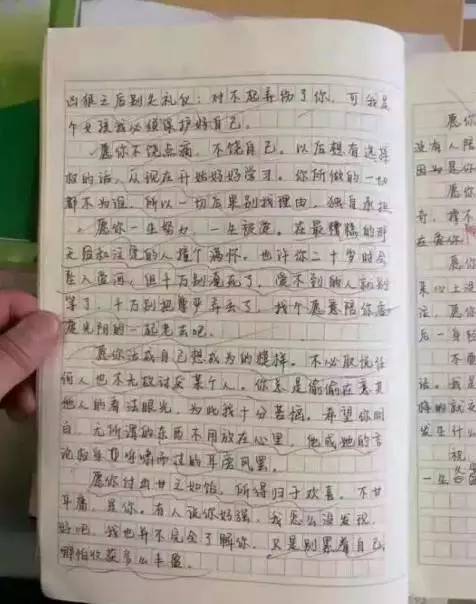 凶狠之后别失礼仪：对不起弄伤了你，可我是
个女孩我必须保护好自己。
愿你不饶点痛，不饶自己。以后想有选择
权的话，从现在开始好好学习。你所做的一切
都不为谁，所以一切后果别找理由，独自承担
愿你一生努力，一生被爱。在最糟糕的那
天后和注定的人撞个满怀。也许你二十岁时会
坠入爱河，但千万别淹死了，爱不到的人就别
等了，千万别把尊严弄丢了，找个愿意陪你
度光阴的一起老去吧。
愿你活成自己想成为的模样。不必取悦任
何人也不放讨某个人。你总是偷偷在意其
他人的看法眼光，为此我十分苦恼。希望你明
白，无所谓的东西不用放在心里，他或她的言
论呼啸而过的耳旁风罢。
愿你付出甘之如饴，所得归于欢喜。不
耳痛，是你。有人说你好强，我怎么没发现，
好吧，我也并不完全了解你，只是别累着自己
哪怕收获多么丰盈。
愿你
没有人陪
因为是你
愿你
奇，撑
在爱你
愿你
某心上
注，愿你
后一身
不要
话。我
样的就
发生什么
祝
一生